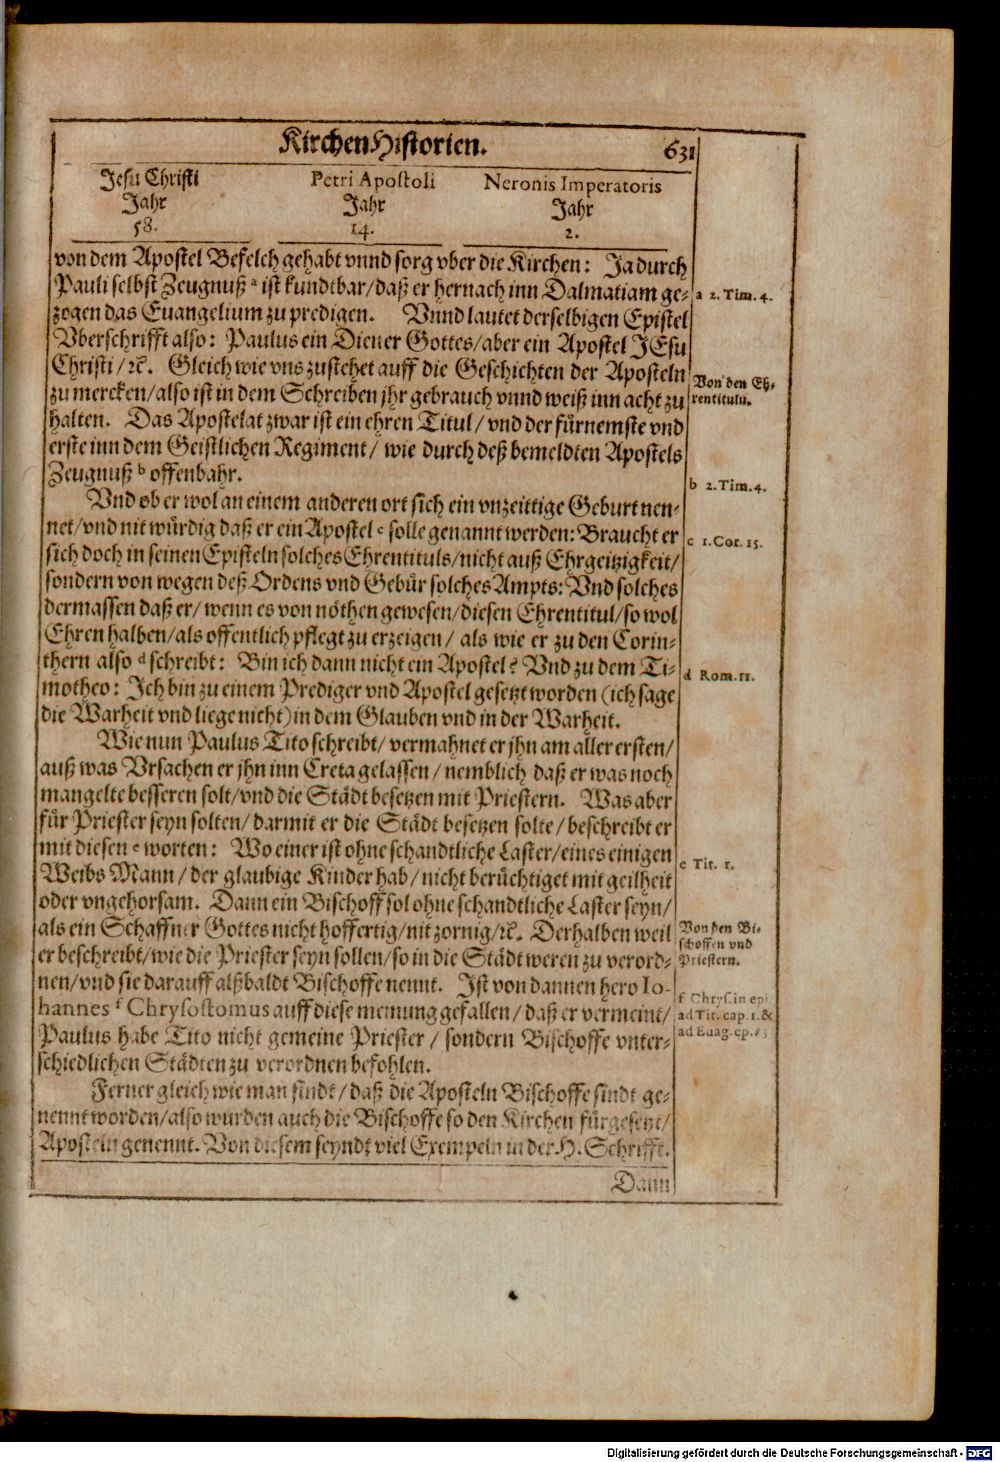 Kirchen Historien.
631
Jesu Christi
Jahr
58.
Petri Apostoli
Jahr
14.
Neronis Imperatoris
Jahr
2.
von dem Apostel Befelch gehabt vnnd sorg vber die Kirchen: Ja durch
Pauli selbst Zeugnuß a ist kundtbar/daß er hernach inn Dalmatiam ge-
zogen das Euangelium zu predigen. Vnnd lautet derselbigen Epistel
Vberschrifft also: Paulus ein Diener Gottes/aber ein Apostel JEsu
Christi/ꝛc. Gleich wie vns zustehet auff die Geschichten der Aposteln
zu mercken/also ist in dem Schreiben jhr gebrauch vnnd weiß inn acht zu
halten. Das Apostelat zwar ist ein ehren Titul/ vnd der fürnemste vnd
erste inn dem Geistlichen Regiment/ wie durch deß bemeldten Apostels
Zeugnuß b offenbahr.
Vnd ob er wol an einem anderen ort sich ein vnzeittige Geburt nen-
net/vnd nit würdig daß er ein Apostel c solle genannt werden: Braucht er
sich doch in seinen Episteln solches Ehrentituls/nicht auß Ehrgeitzigkeit/
sondern von wegen deß Ordens vnd Gebür solches Ampts: Vnd solches
dermassen daß er/ wenn es von nöthen gewesen/diesen Ehrentitul/so wol
Ehren halben/als offentlich pflegt zu erzeigen/ als wie er zu den Corin-
thern also d schreibt: Bin ich dann nicht ein Apostel? Vnd zu dem Ti-
motheo: Ich bin zu einem Prediger vnd Apostel gesetzt worden (ich sage
die Warheit vnd liege nicht) in dem Glauben vnd in der Warheit.
Wie nun Paulus Tito schreibt/ vermahnet er jhn am aller ersten/
auß was Vrsachen er jhn inn Creta gelassen/ nemblich daß er was noch
mangelte besseren solt/vnd die Städt besetzen mit Priestern. Was aber
für Priester seyn solten/ darmit er die Städt besetzen solte/ beschreibt er
mit diesen e worten: Wo einer ist ohne schandtliche Laster/eines einigen
Weibs Mann/ der glaubige Kinder hab/ nicht berüchtiget mit geilheit
oder vngehorsam. Dann ein Bischoff sol ohne schandtliche Laster seyn/
als ein Schaffner Gottes nicht hoffertig/nit zornig/ꝛc. Derhalben weil
er beschreibt/wie die Priester seyn sollen/so in die Städt weren zu verord-
nen/vnd sie darauff alßbaldt Bischoffe nennt. Ist von dannen hero Io-
hannes f Chrysostomus auff diese meinung gefallen/ daß er vermeint/
Paulus habe Tito nicht gemeine Priester/ sondern Bischoffe vnter-
schiedlichen Städten zu verordnen befohlen.
Ferner gleich wie man findt/ daß die Aposteln Bischoffe sindt ge-
nennt worden/also wurden auch die Bischoffe so den Kirchen fürgesetzt/
Aposteln genennt. Von diesem seyndt viel Exempeln in der H. Schrifft.
Dann
a 2. Tim. 4.
Von den Eh-
rentituln.
b 2. Tim. 4.
c 1. Cor. 15.
d Rom. 11.
e Tit. 1.
Von den Bi-
schoffen vnd
Priestern.
f Chrys. in epi.
ad Tit. cap. 1. &
ad Euag. ep. 85
Digitalisierung gefördert durch die Deutsche Forschungsgemeinschaft - DFG